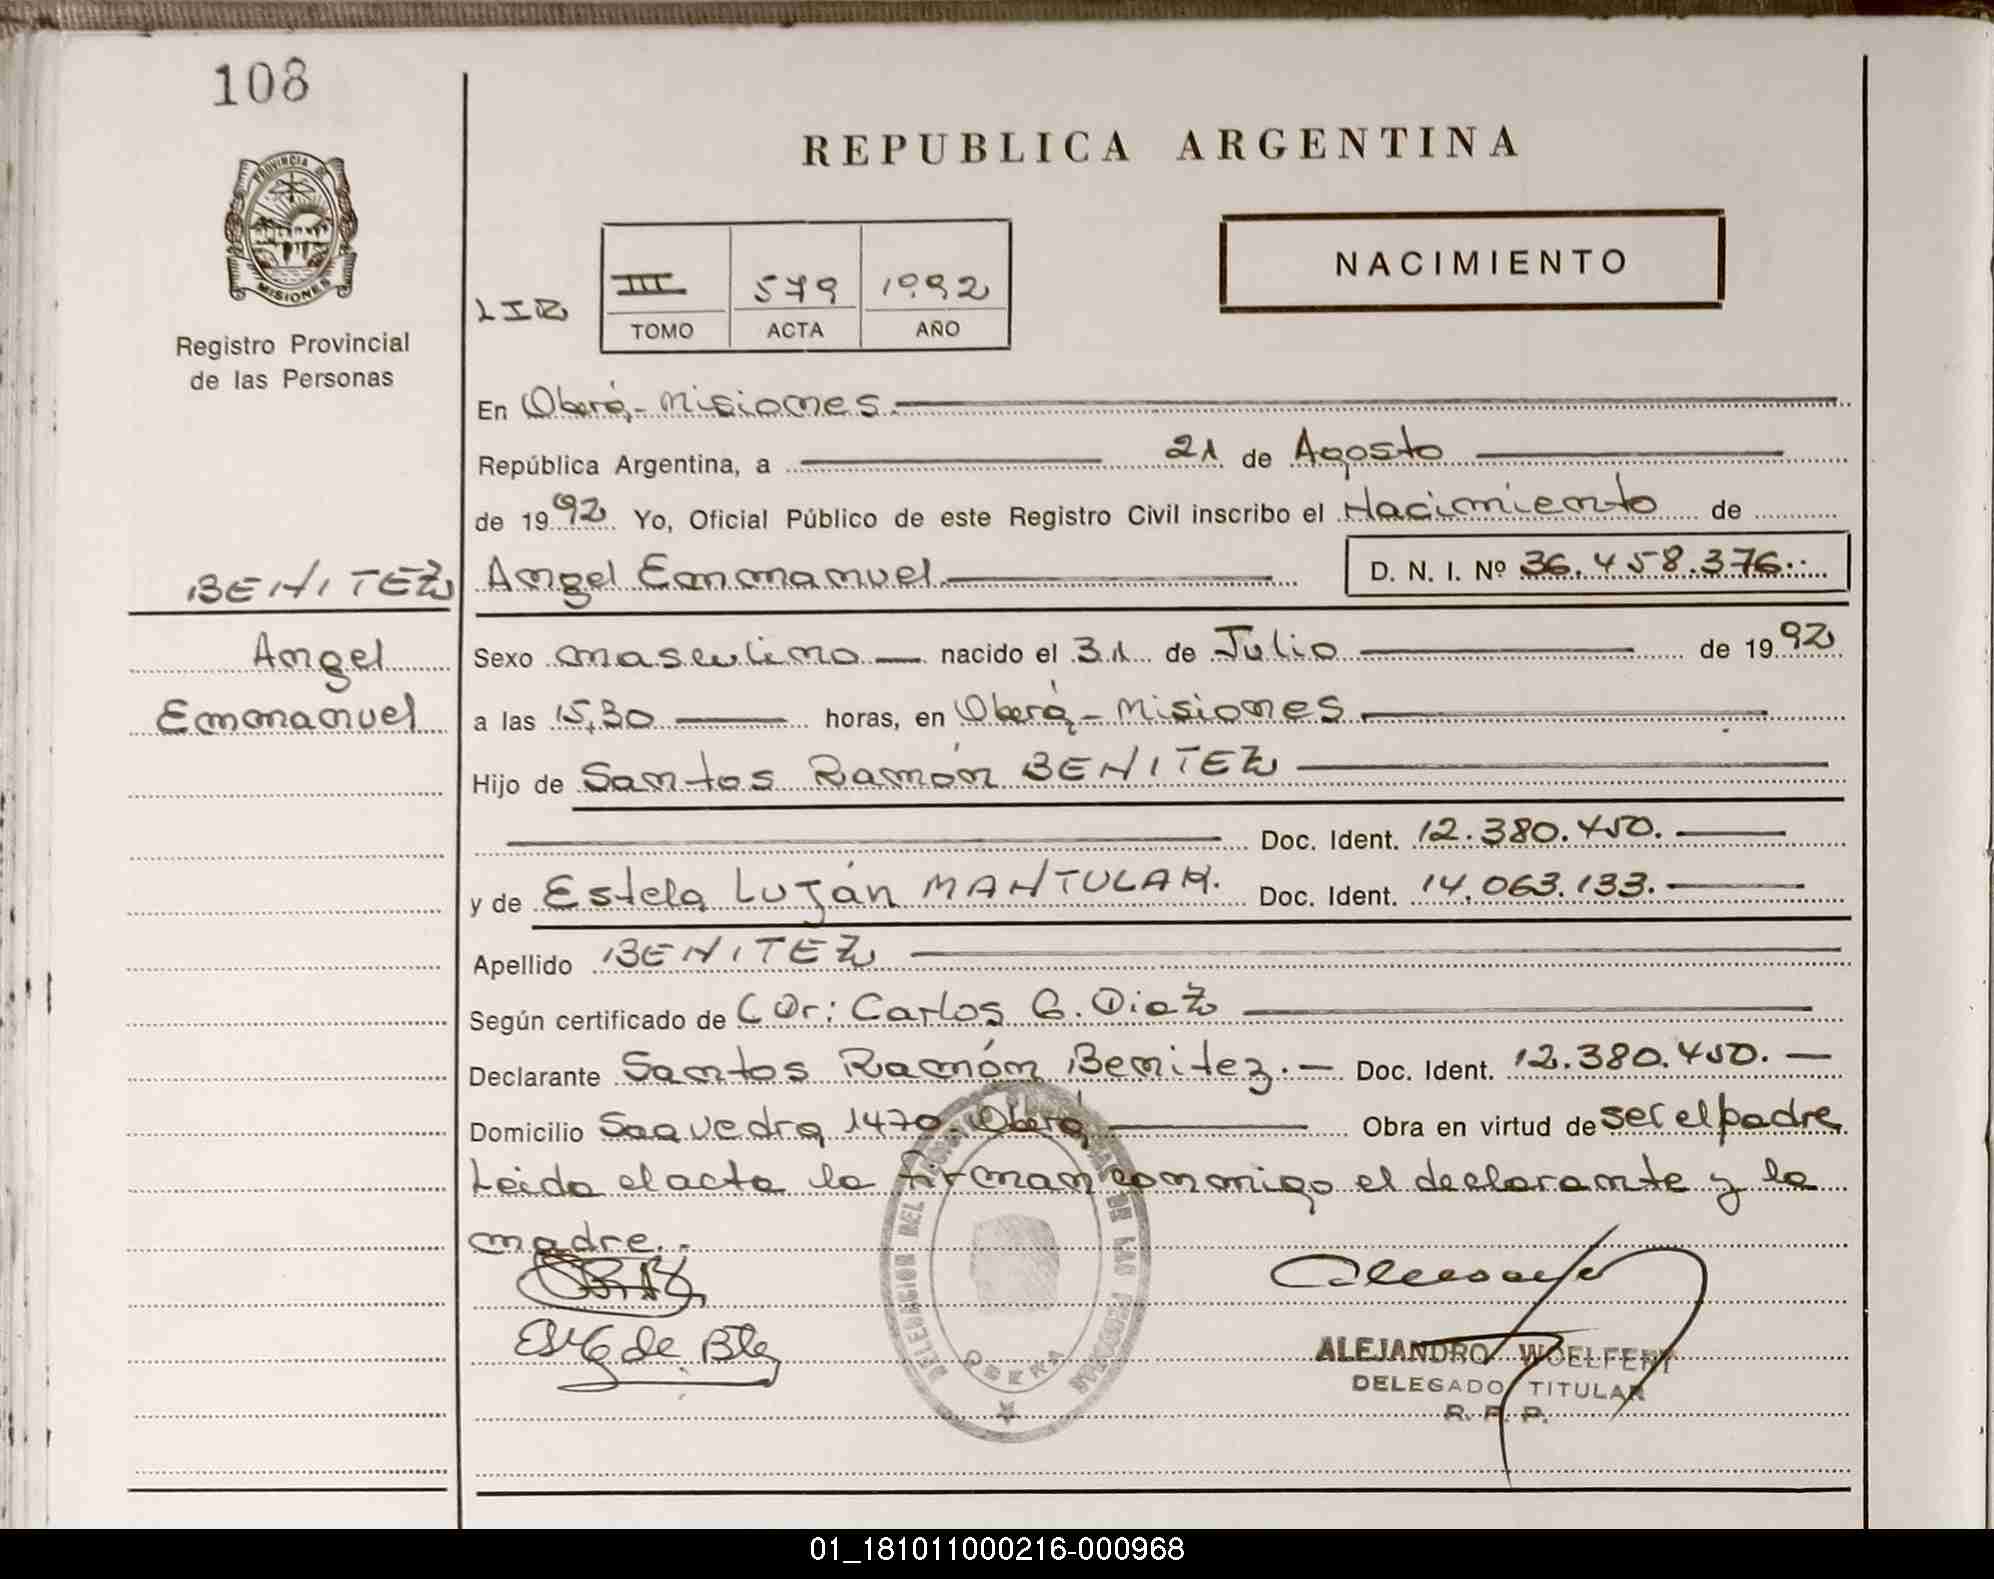 108
REPUBLICA ARGENTINA
PROVINCIA DE
MISIONES
Registro Provincial
de las Personas
NACIMIENTO
III 579 1992
TOMO ACTA AÑO
En Oberá,- Misiones.
República Argentina, a 21 de Agosto
de 1992 Yo, Oficial Público de este Registro Civil inscribo el Nacimiento de
BENITEZ
Angel Emmanuel D. N. I. Nº 36.458.376.-
Angel
Emmanuel
Sexo masculino nacido el 31 de Julio de 1992
a las 15,30 horas, en Oberá,- Misiones.
Hijo de Santos Ramón BENITEZ
Doc. Ident. 12.380.450.
y de Estela Luján MANTULAK. Doc. Ident. 14.063.133.
Apellido BENITEZ
Según certificado de Dr: Carlos G. Diaz
Declarante Santos Ramón Benitez.- Doc. Ident. 12.380.450.-
Domicilio Saavedra 1470. Oberá Obra en virtud de ser el padre
Leida el acta la firman conmigo el declarante y la
madre.-
DELEGACION DEL REGISTRO DE LAS PERSONAS
OBERA
ALEJANDRO WOELFERT
DELEGADO TITULAR
R. P. P.
01_181011000216-000968